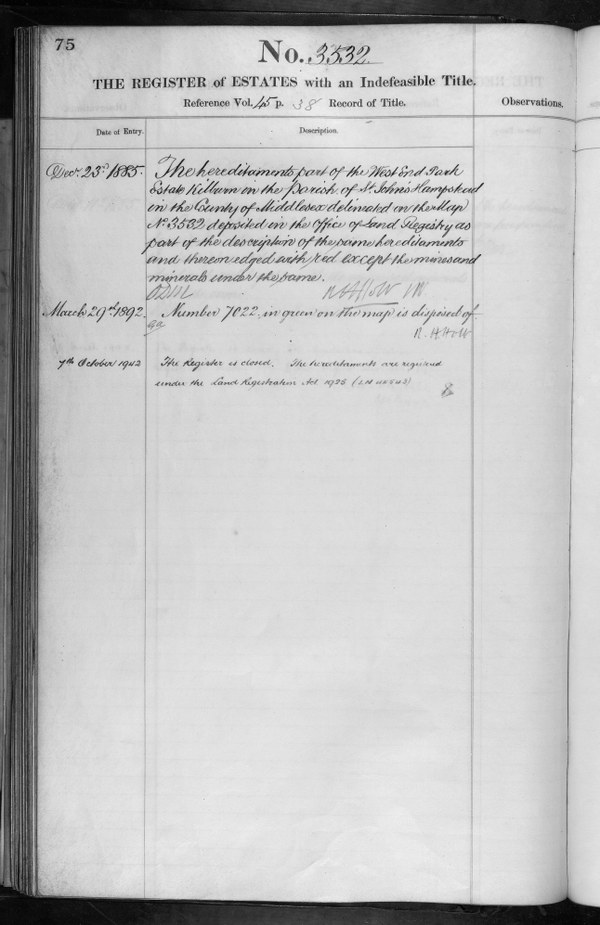 75
No. 3532.
THE REGISTER of ESTATES with an Indefeasible Title.
Reference Vol. 45 p. 38 Record of Title.
Observations.
Date of Entry.
Description.
Decr. 23rd 1885.
The hereditaments part of the West End Park
Estate Kilburn in the Parish of St. John's Hampstead
in the County of Middlesex delineated on the Map
No. 3532 deposited in the Office of Land Registry as
part of the description of the same hereditaments
and thereon edged with red except the mines and
minerals under the same.
R H Holt
March 29th 1892.
Number 7022 in green on the map is disposed of
R. H. Holt
7th October 1942
The Register is closed. The hereditaments are registered
under the Land Registration Act 1925